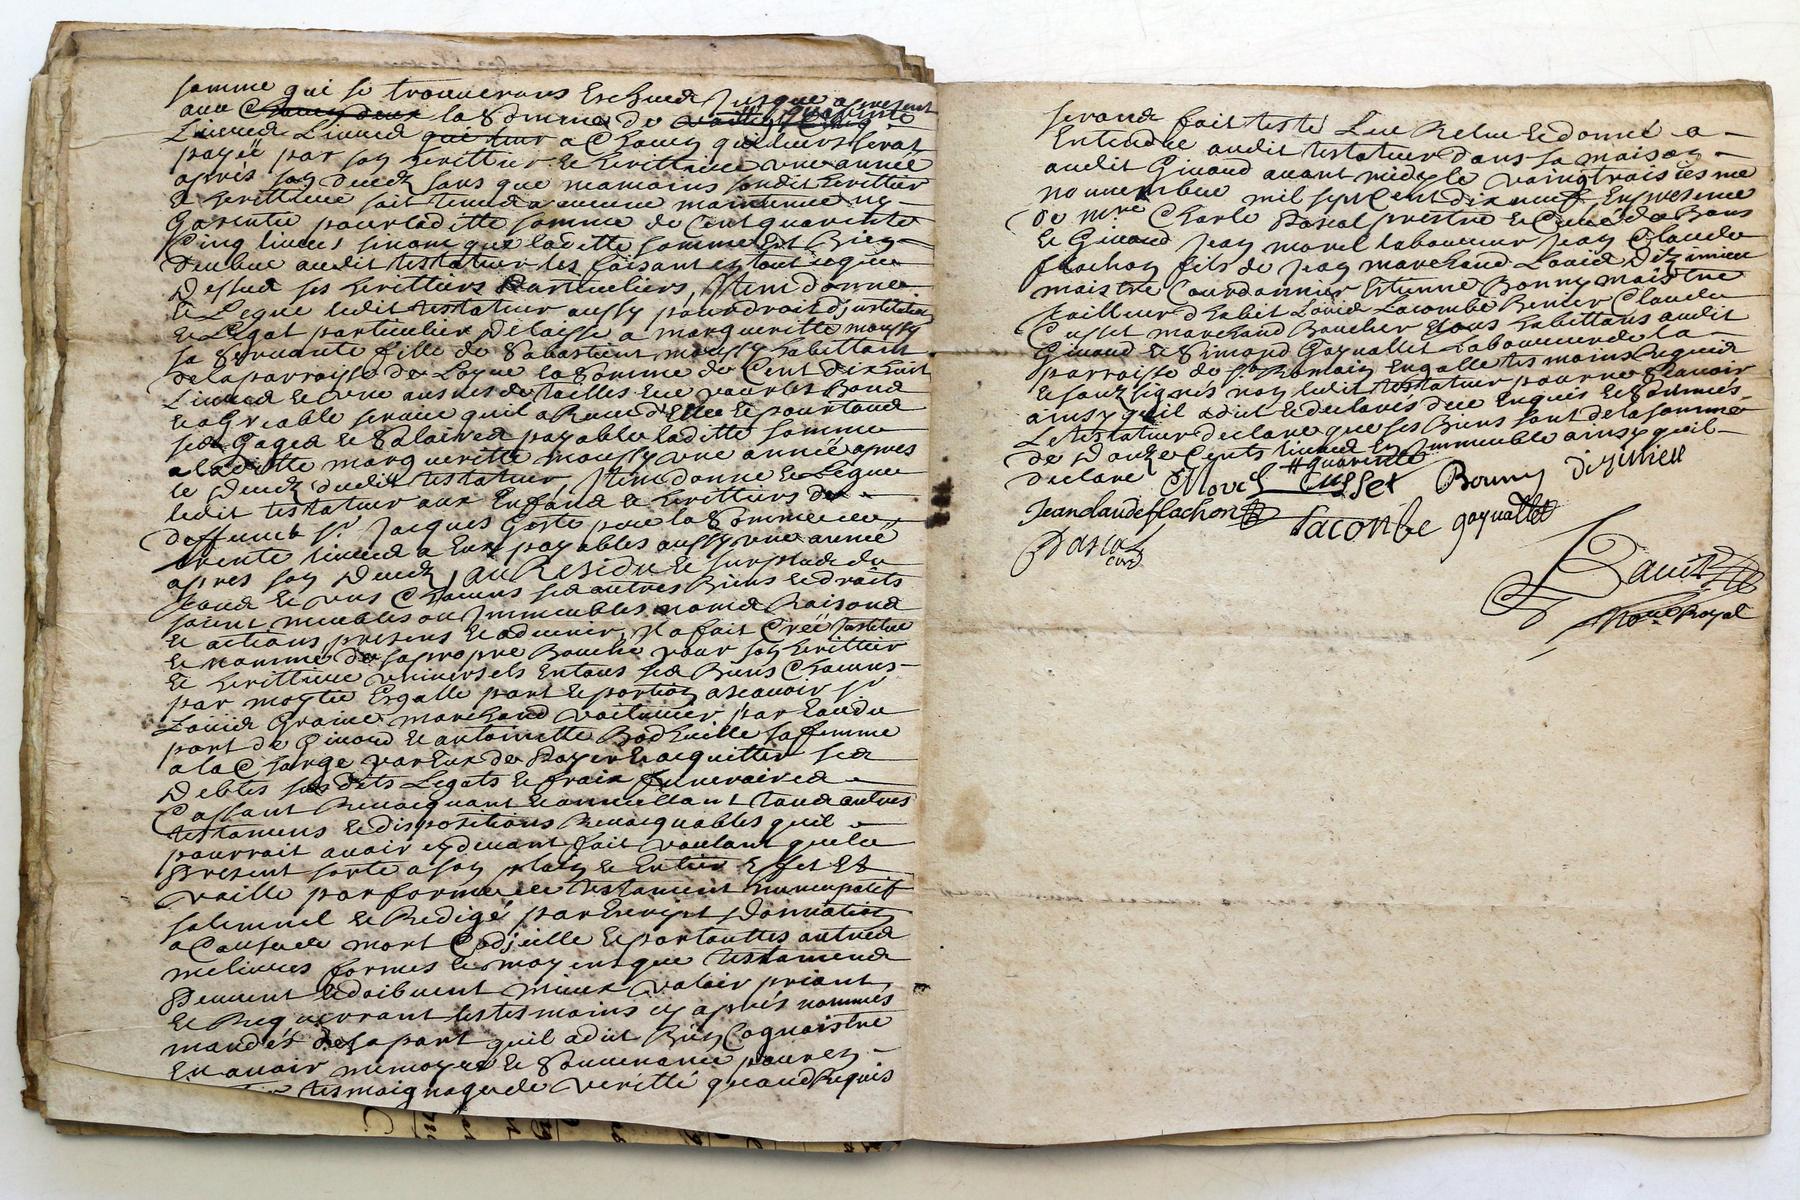 somme qui se trouverons Escheuës jusque apresent
aux la Somme de
Livres qui leurs seras
payéë par son herittier et herittiere une année
apres son decedz sans que neamoins sondit herittier
et herittiere soit tenu a aucune maintenue ny
Garentie pour laditte somme de Cent quarente
Cinq livres sinont que laditte somme Est Bien
deubue audit testateur les faisant en tout ce que
dessus ses herittiers Particuliers, Item donne
et Legue ledit testateur aussy pour droit d'institution
et Legat particulier delaisse a margueritte moussy
sa servante fille de Sabastient moussy habittant
de la parroisse de la Somme de Cent dix huit
Livres et une asnés de
agreable service quil a Receu d'Elle et pour tous
ses Gages et Salaires payable laditte somme
a laditte margueritte moussy une année apres
le decedz dudit testateur, Item donne et Legue
ledit testateur aux Enfans et herittiers de
deffunct sr Jacques Goste la Somme de
trente livres a Eux payables aussy une année
apres son decedz, Au Residu et surplus du
fond et uns Chacuns ses autres Biens et droits
soient meubles ou Immeubles noms Raisons
et actions presens et advenir, Il a fait Créé Institué
et nommé de sa propre Bouche pour son herittier
et herittiere universels En tous ses Biens Chacuns
par moytié Esgalle part et portion ascavoir sr
Louis Graine marchand voiturier par Eau du
port de Givord et antoinette Bodheille sa femme
a la Charge par Eux de Payer et acquitter ses
debtes sus dits Legats et fraix funeraires
Cassant Revoquant et annullant tous autres
testamens et dispositions Revoquables quil
pourroit avoir cy devant fait voulant que le
Present sorte a son plain et Entier Effet Et
vaille par forme de testament nuncupatif
solemnel et Redigé par Escript donnation
a Cause de mort Codicille et par touttes autres
melieures formes et moyens que testamens
Peuvent et doibvent mieux valoir priant
et Requerrant les tesmoins cy après nommés
mandés de sa part quil a dit Bien Cognoistre
En avoir memoyre et Souvenance pour en
tesmoignage de verité quand Requis
seronts fait Leu Releu et donné a
Entendre audit testateur dans sa maison
audit Givord avant midy le vaingtroisiesme
novvembre mil sept Cent dix neuf En presence
de mre Charle Pascal prestre et Curé de Bans
et Givord Jean morel laboureur Jean Claude
flachon fils de Jean marchand Louis Dizimieu
maistre Courdonnier Estienne Bonny maistre
tailleur d'habit Louis Lacombe Claude
Cusset marchand Boucher tous habittans audit
Givord et Simond Gaynallet Laboureur de la
parroisse de St Romain En galle tesmoins Requis
et Sousignés non ledit testateur pour ne Scavoir
ainsy quil a dit et declarés de ce Enquis et Sommés
Le testateur declare que ses Biens sont de la somme
de Douze Cents livres En Immeuble ainsy quil
declare # quarente
Morel Cusset Bonny dizimieu
Jean claude flachon Lacombe gaynallet
Pascal
curé
no.re Royal